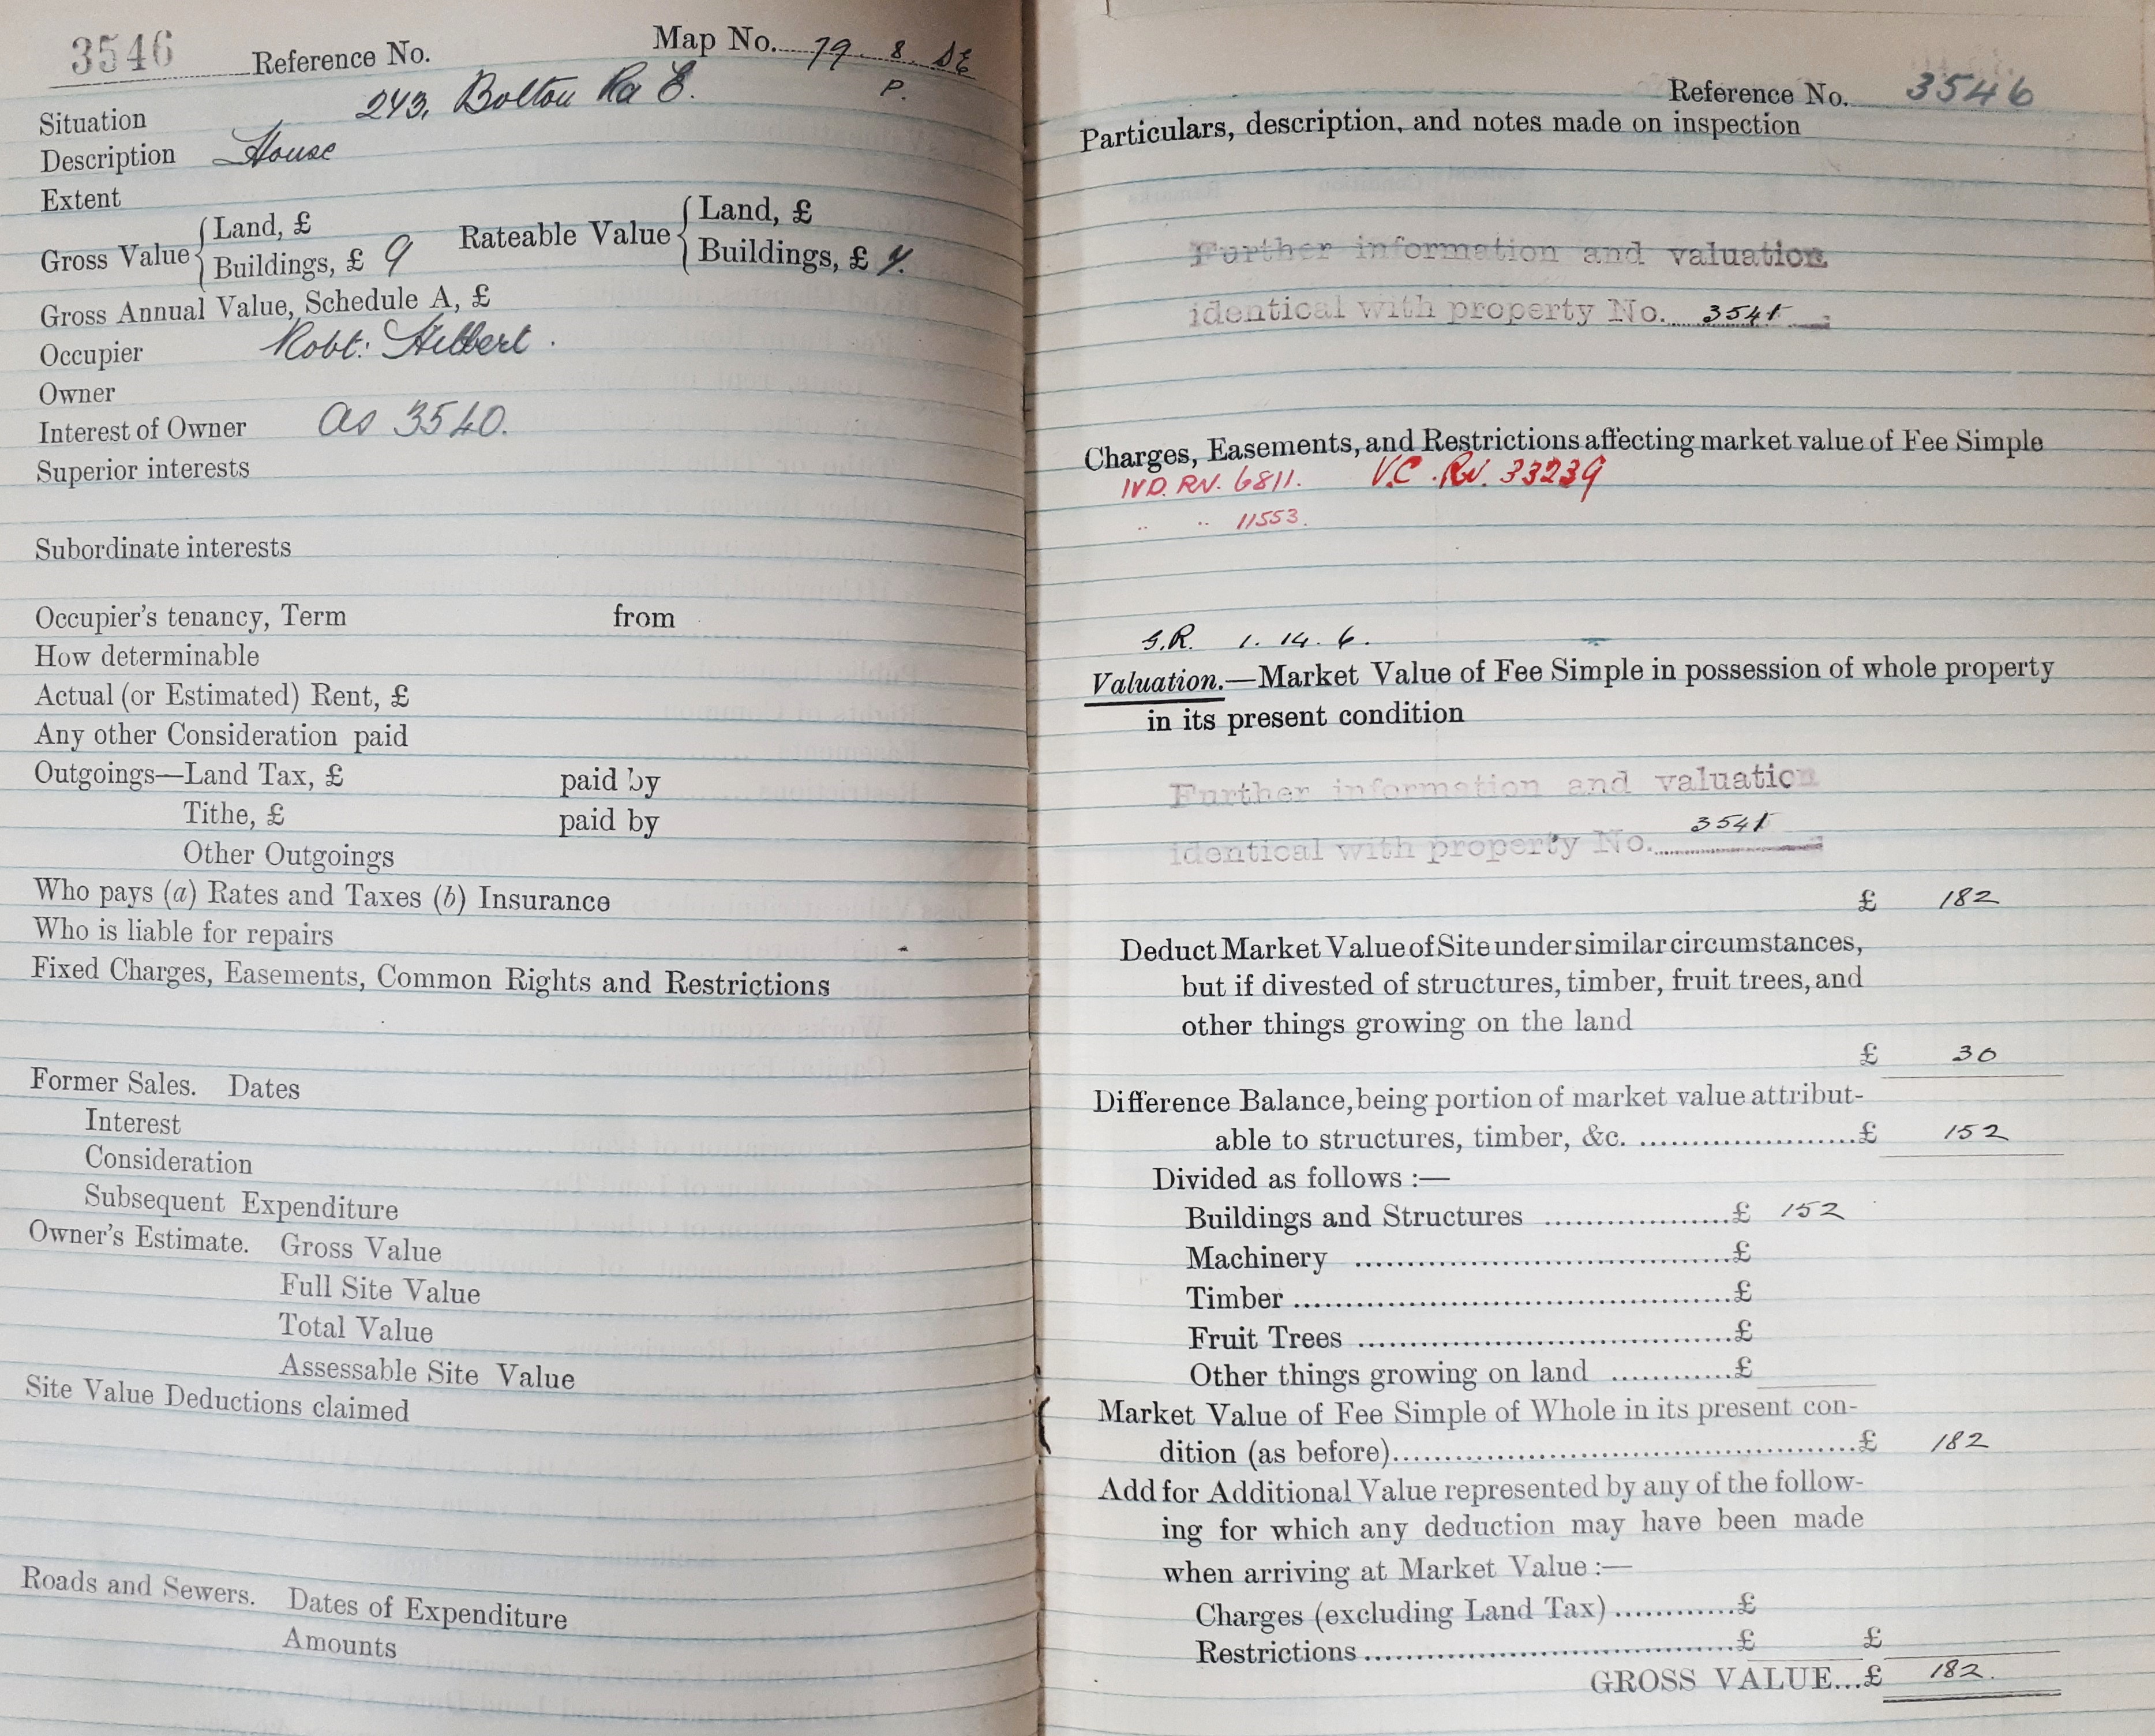 3546 Reference No. Map No. 79. 8. SE
P.
Situation 243, Bolton Rd E.
Description House
Extent
Gross Value { Land, £ Rateable Value { Land, £
Buildings, £ 9 Buildings, £
Gross Annual Value, Schedule A, £
Occupier Robt: Hilbert.
Owner
Interest of Owner as 3540.
Superior interests
Subordinate interests
Occupier's tenancy, Term from
How determinable
Actual (or Estimated) Rent, £
Any other Consideration paid
Outgoings—Land Tax, £ paid by
Tithe, £ paid by
Other Outgoings
Who pays (a) Rates and Taxes (b) Insurance
Who is liable for repairs
Fixed Charges, Easements, Common Rights and Restrictions
Former Sales. Dates
Interest
Consideration
Subsequent Expenditure
Owner's Estimate. Gross Value
Full Site Value
Total Value
Assessable Site Value
Site Value Deductions claimed
Roads and Sewers. Dates of Expenditure
Amounts
Reference No. 3546
Particulars, description, and notes made on inspection
Further information and valuation
identical with property No. 3541
Charges, Easements, and Restrictions affecting market value of Fee Simple
IVD. RN. 6811. V.C. RN. 33239
.. .. 11553.
G.R. 1. 14. 6.
Valuation.—Market Value of Fee Simple in possession of whole property
in its present condition
Further information and valuation
identical with property No. 3541
£ 182
Deduct Market Value of Site under similar circumstances,
but if divested of structures, timber, fruit trees, and
other things growing on the land
£ 30
Difference Balance, being portion of market value attribut-
able to structures, timber, &c. ....................£ 152
Divided as follows :—
Buildings and Structures ..................£ 152
Machinery ......................................£
Timber ...........................................£
Fruit Trees .....................................£
Other things growing on land ............£
Market Value of Fee Simple of Whole in its present con-
dition (as before)..............................................£ 182
Add for Additional Value represented by any of the follow-
ing for which any deduction may have been made
when arriving at Market Value :—
Charges (excluding Land Tax) ............£
Restrictions .....................................£ £
GROSS VALUE...£ 182.